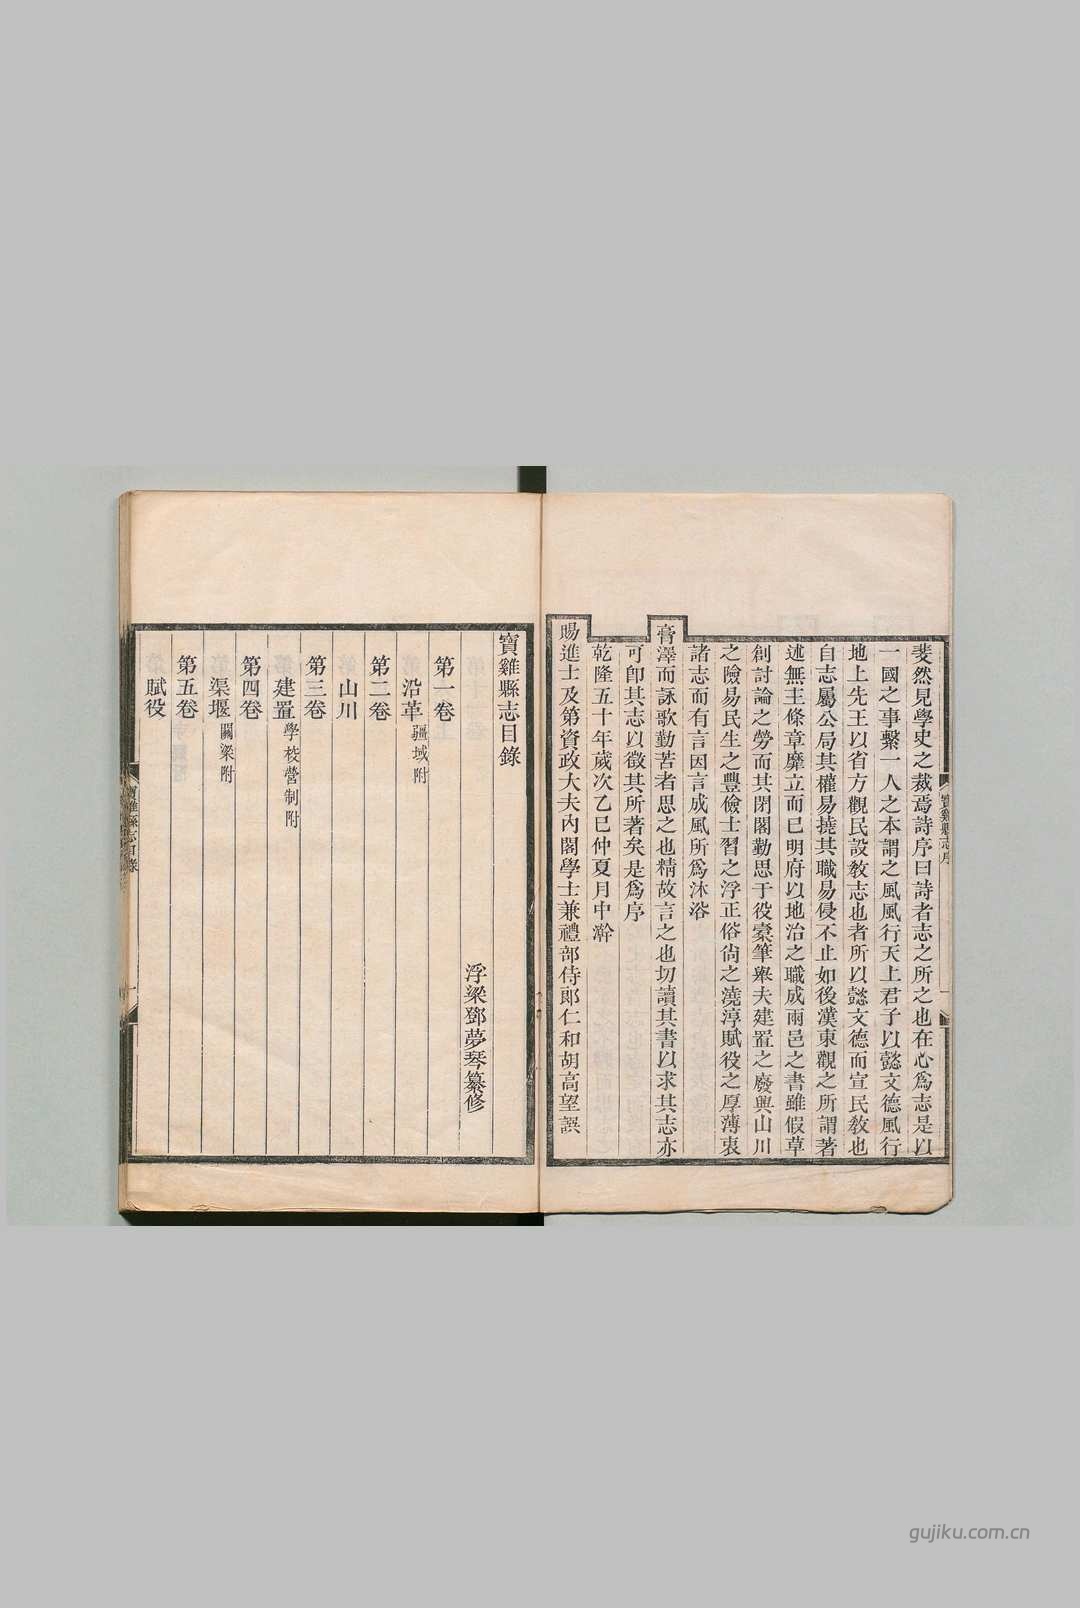 斐然見學史之裁焉詩序曰詩者志之所之也在心爲志是以
一國之事繫一人之本謂之風風行天上君子以懿文德風行
地上先王以省方觀民設教志也者所以懿文德而宣民教也
自志屬公局其權易撓其職易侵不止如後漢東觀之所謂著
述無主條章靡立而已明府以地治之職成兩邑之書雖假草
創討論之勞而其閉閣勤思于役橐筆舉夫建置之廢興山川
之險易民生之豐儉士習之浮正俗尙之澆淳賦役之厚薄衷
諸志而有言因言成風所爲沐浴
膏澤而詠歌勤苦者思之也精故言之也切讀其書以求其志亦
可卽其志以徵其所著矣是爲序
乾隆五十年歲次乙巳仲夏月中澣
賜進士及第資政大夫內閣學士兼禮部侍郞仁和胡高望譔
寶雞縣志序
寶雞縣志目錄
浮梁鄧夢琴纂修
第一卷
沿革 疆域附
第二卷
山川
第三卷
建置 學校營制附
第四卷
渠堰 關梁附
第五卷
賦役
寶雞縣志目錄
一
gujiku.com.cn